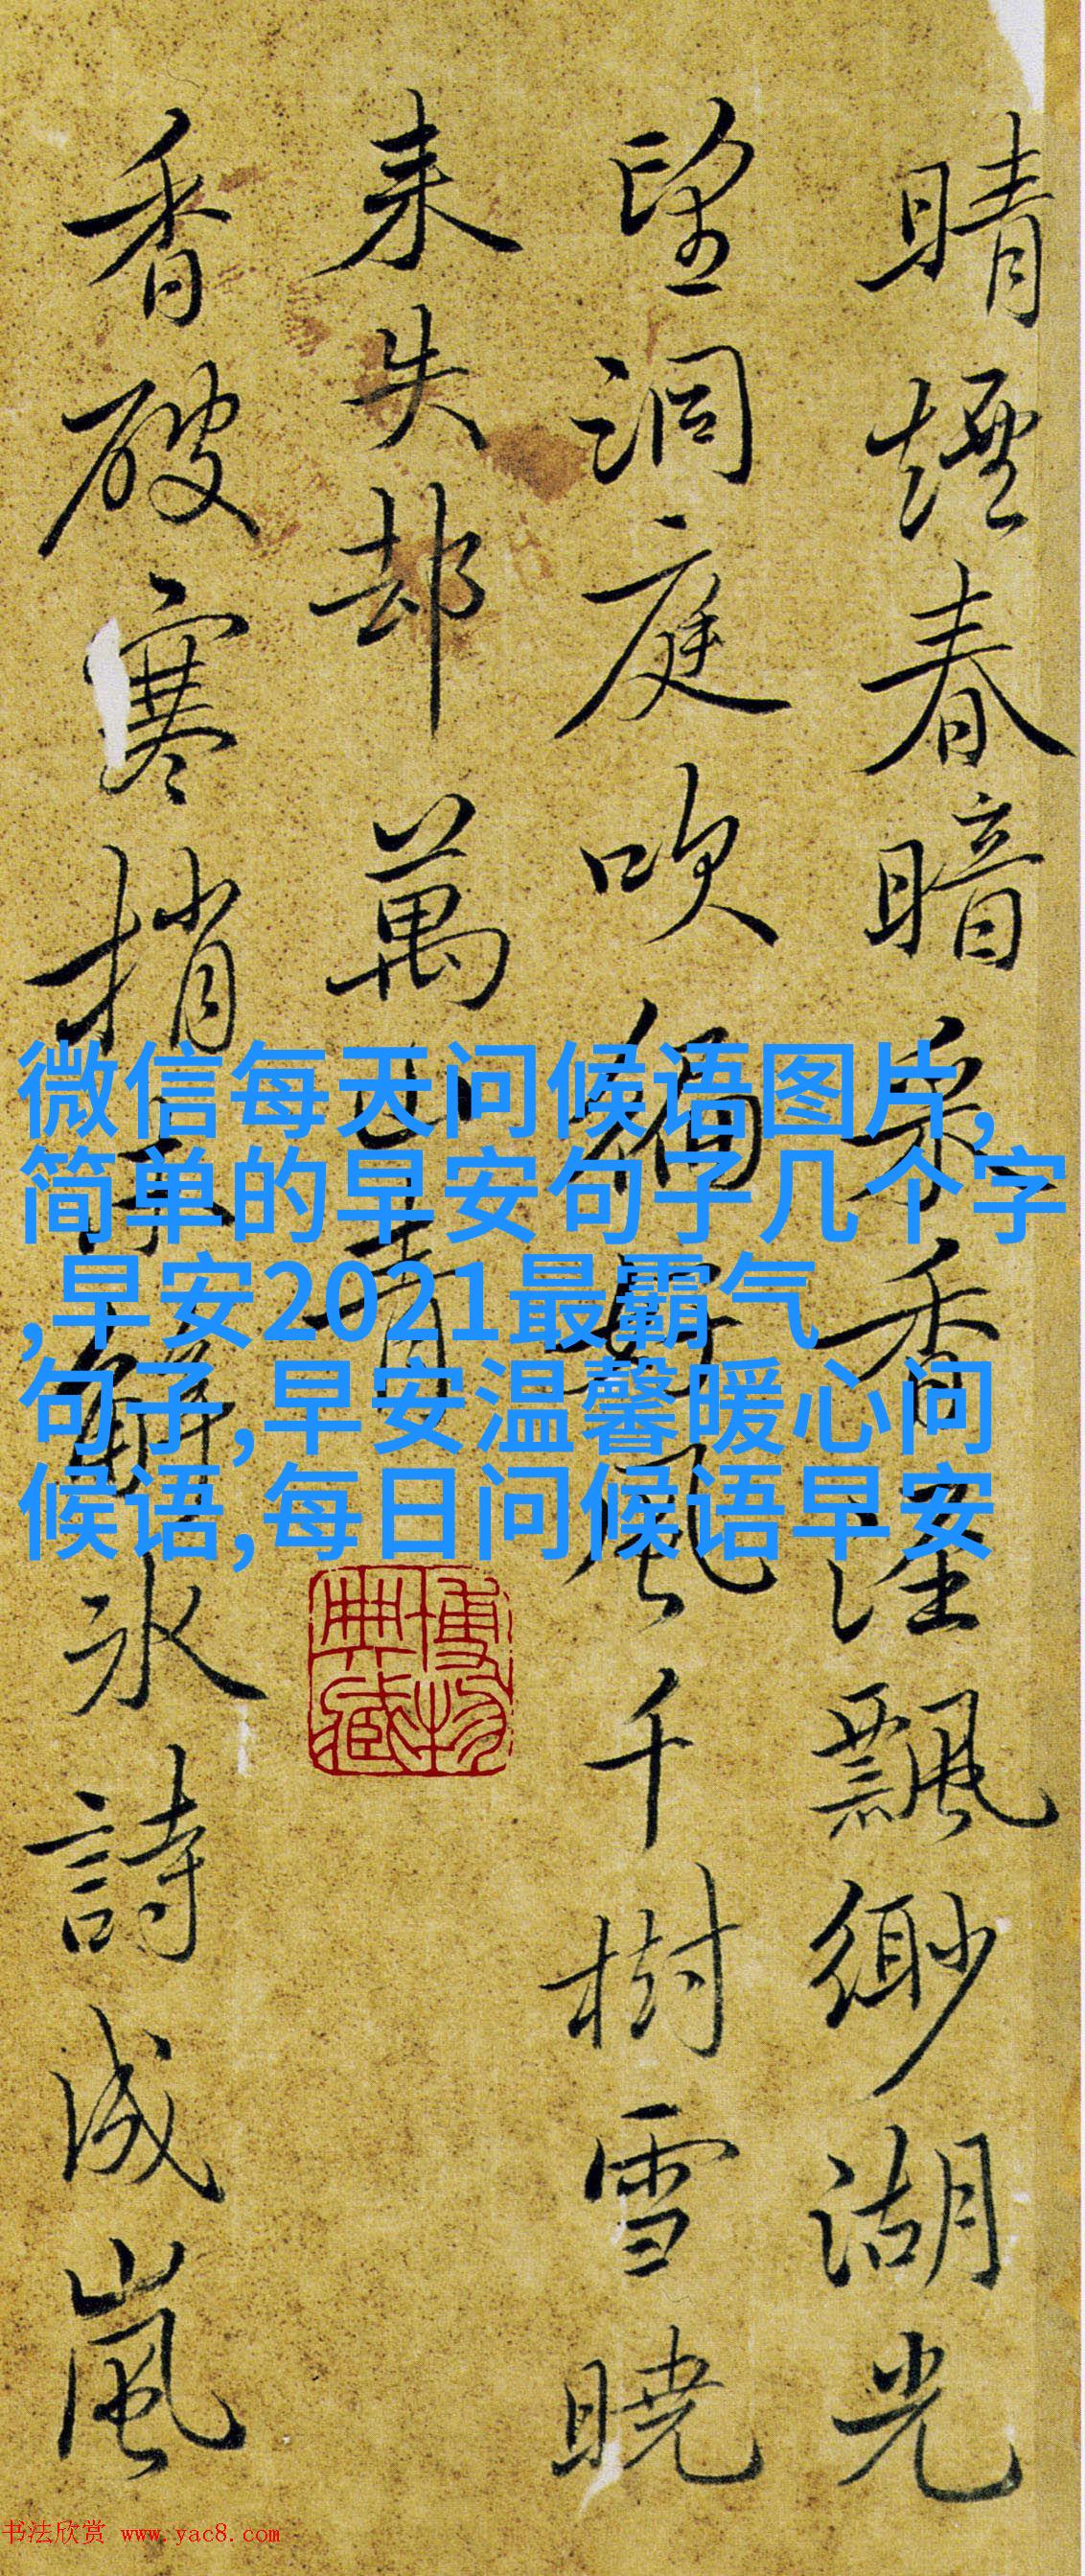 晴煙春暗香飄緲湖光
望洞庭吹風千樹雪曉
来失却萬山青
香破寒梢解冰詩成嵐
微信每天问候语图片,
简单的早安句子几个字
,早安2021最霸气
句子,早安温馨暖心问
候语,每日问候语早安
博物
典藏
书法欣赏 www.yac8.com